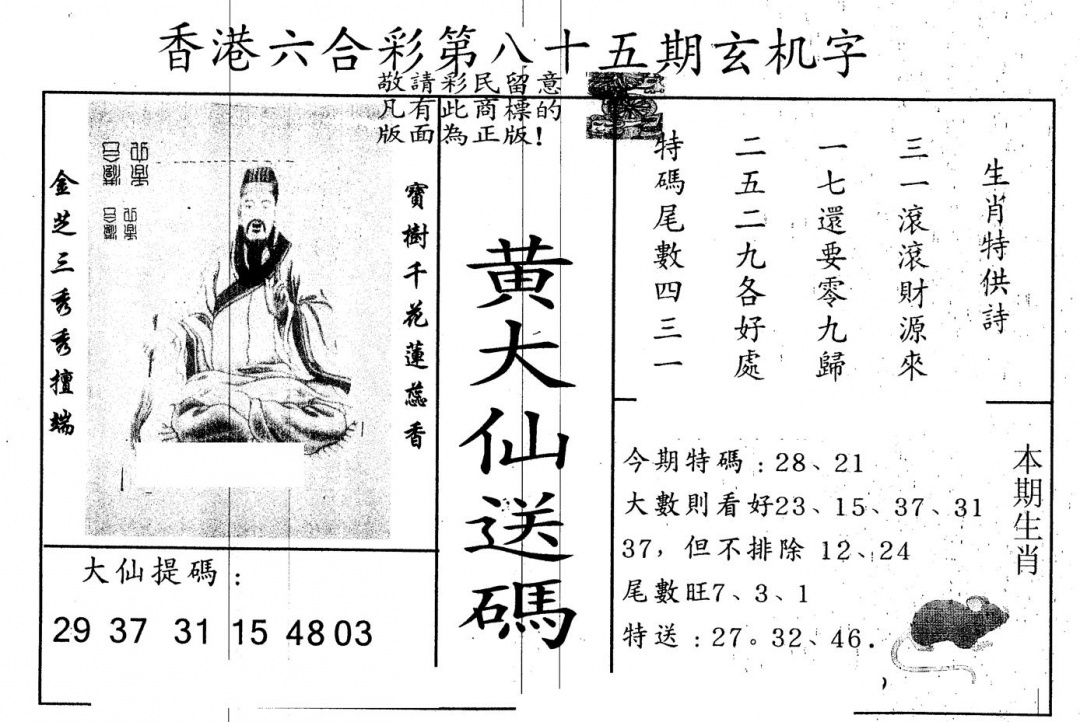 香港六合彩第八十五期玄机字
敬請彩民留意
凡有此商標的
版面為正版！
寶樹千花蓮蕊香
金芝三秀秀擅端
黄大仙送碼
生肖特供詩
三一滾滾財源來
一七還要零九歸
二五二九各好處
特碼尾數四三一
大仙提碼：
29 37 31 15 48 03
今期特碼：28、21
大數則看好23、15、37、31
37，但不排除 12、24
尾數旺7、3、1
特送：27。32、46.
本期生肖